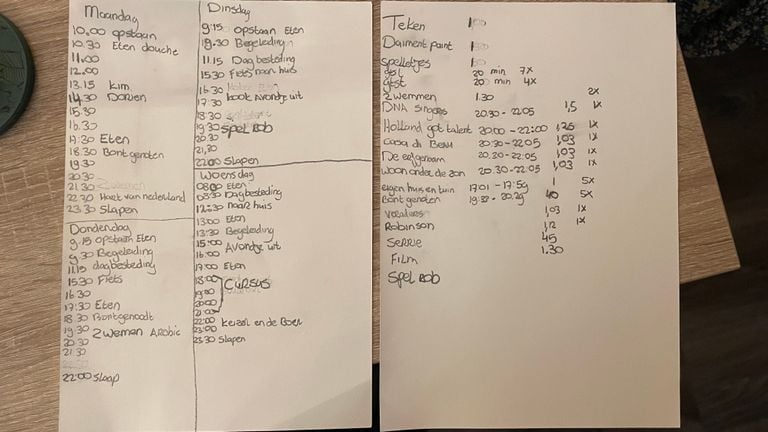 Maandag
10.00 opstaan
10.30 Eten douche
11.00
12.00
13.15 Kim
14.30 Dorien
15.30
16.30
17.30 Eten
18.30 Bontgenoten
19.30
20.30
21.30
22.30 Hart van nederland
23.30 Slapen
Dinsdag
9.15 opstaan Eten
9.30 Begeleiding
11.15 Dagbesteding
15.30 Fiets naar huis
16.30
17.30 koot Avondje uit
18.30
19.30 Spel Bob
20.30
21.30
22.00 Slapen
Woensdag
08.00 Eten
08.30 Dagbesteding
12.30 naar huis
13:00 Eten
13:30 Begeleiding
15:00 Avondje uit
16:00
17:00 Eten
18:00 CURSUS
19:00
20:00
21:00
22:00 Keizer en de Boer
23:00
23.30 Slapen
Donderdag
9.15 opstaan Eten
9.30 Begeleiding
11.15 dagbesteding
15.30 Fiets
16.30
17:30 Eten
18.30 Bontgenoodt
19.30 Zwemen Arobic
20.30
21.30
22:00 Slaap
Teken
Daiment paint
Spelletjes
20 min 7x
20 min 4x
Zwemmen 1.30 2x
DNA Singers 20.30-22.05 1,5 1x
Holland got talent 20:00-22:00 1,25 1x
Casa di Beau 20.30-22:05 1,03 1x
De eetgeraem 20.30-22:05 1,03 1x
Woon onder de zon 20.30-22:05 1,03 1x
eigen huis en tuin 17.01-17:59 1 5x
Bontgenoten 19:32-20.29 40 5x
1,03 1x
Robinson 1,12 1x
SERRIE 45
FILM 1.30
Spel Bob